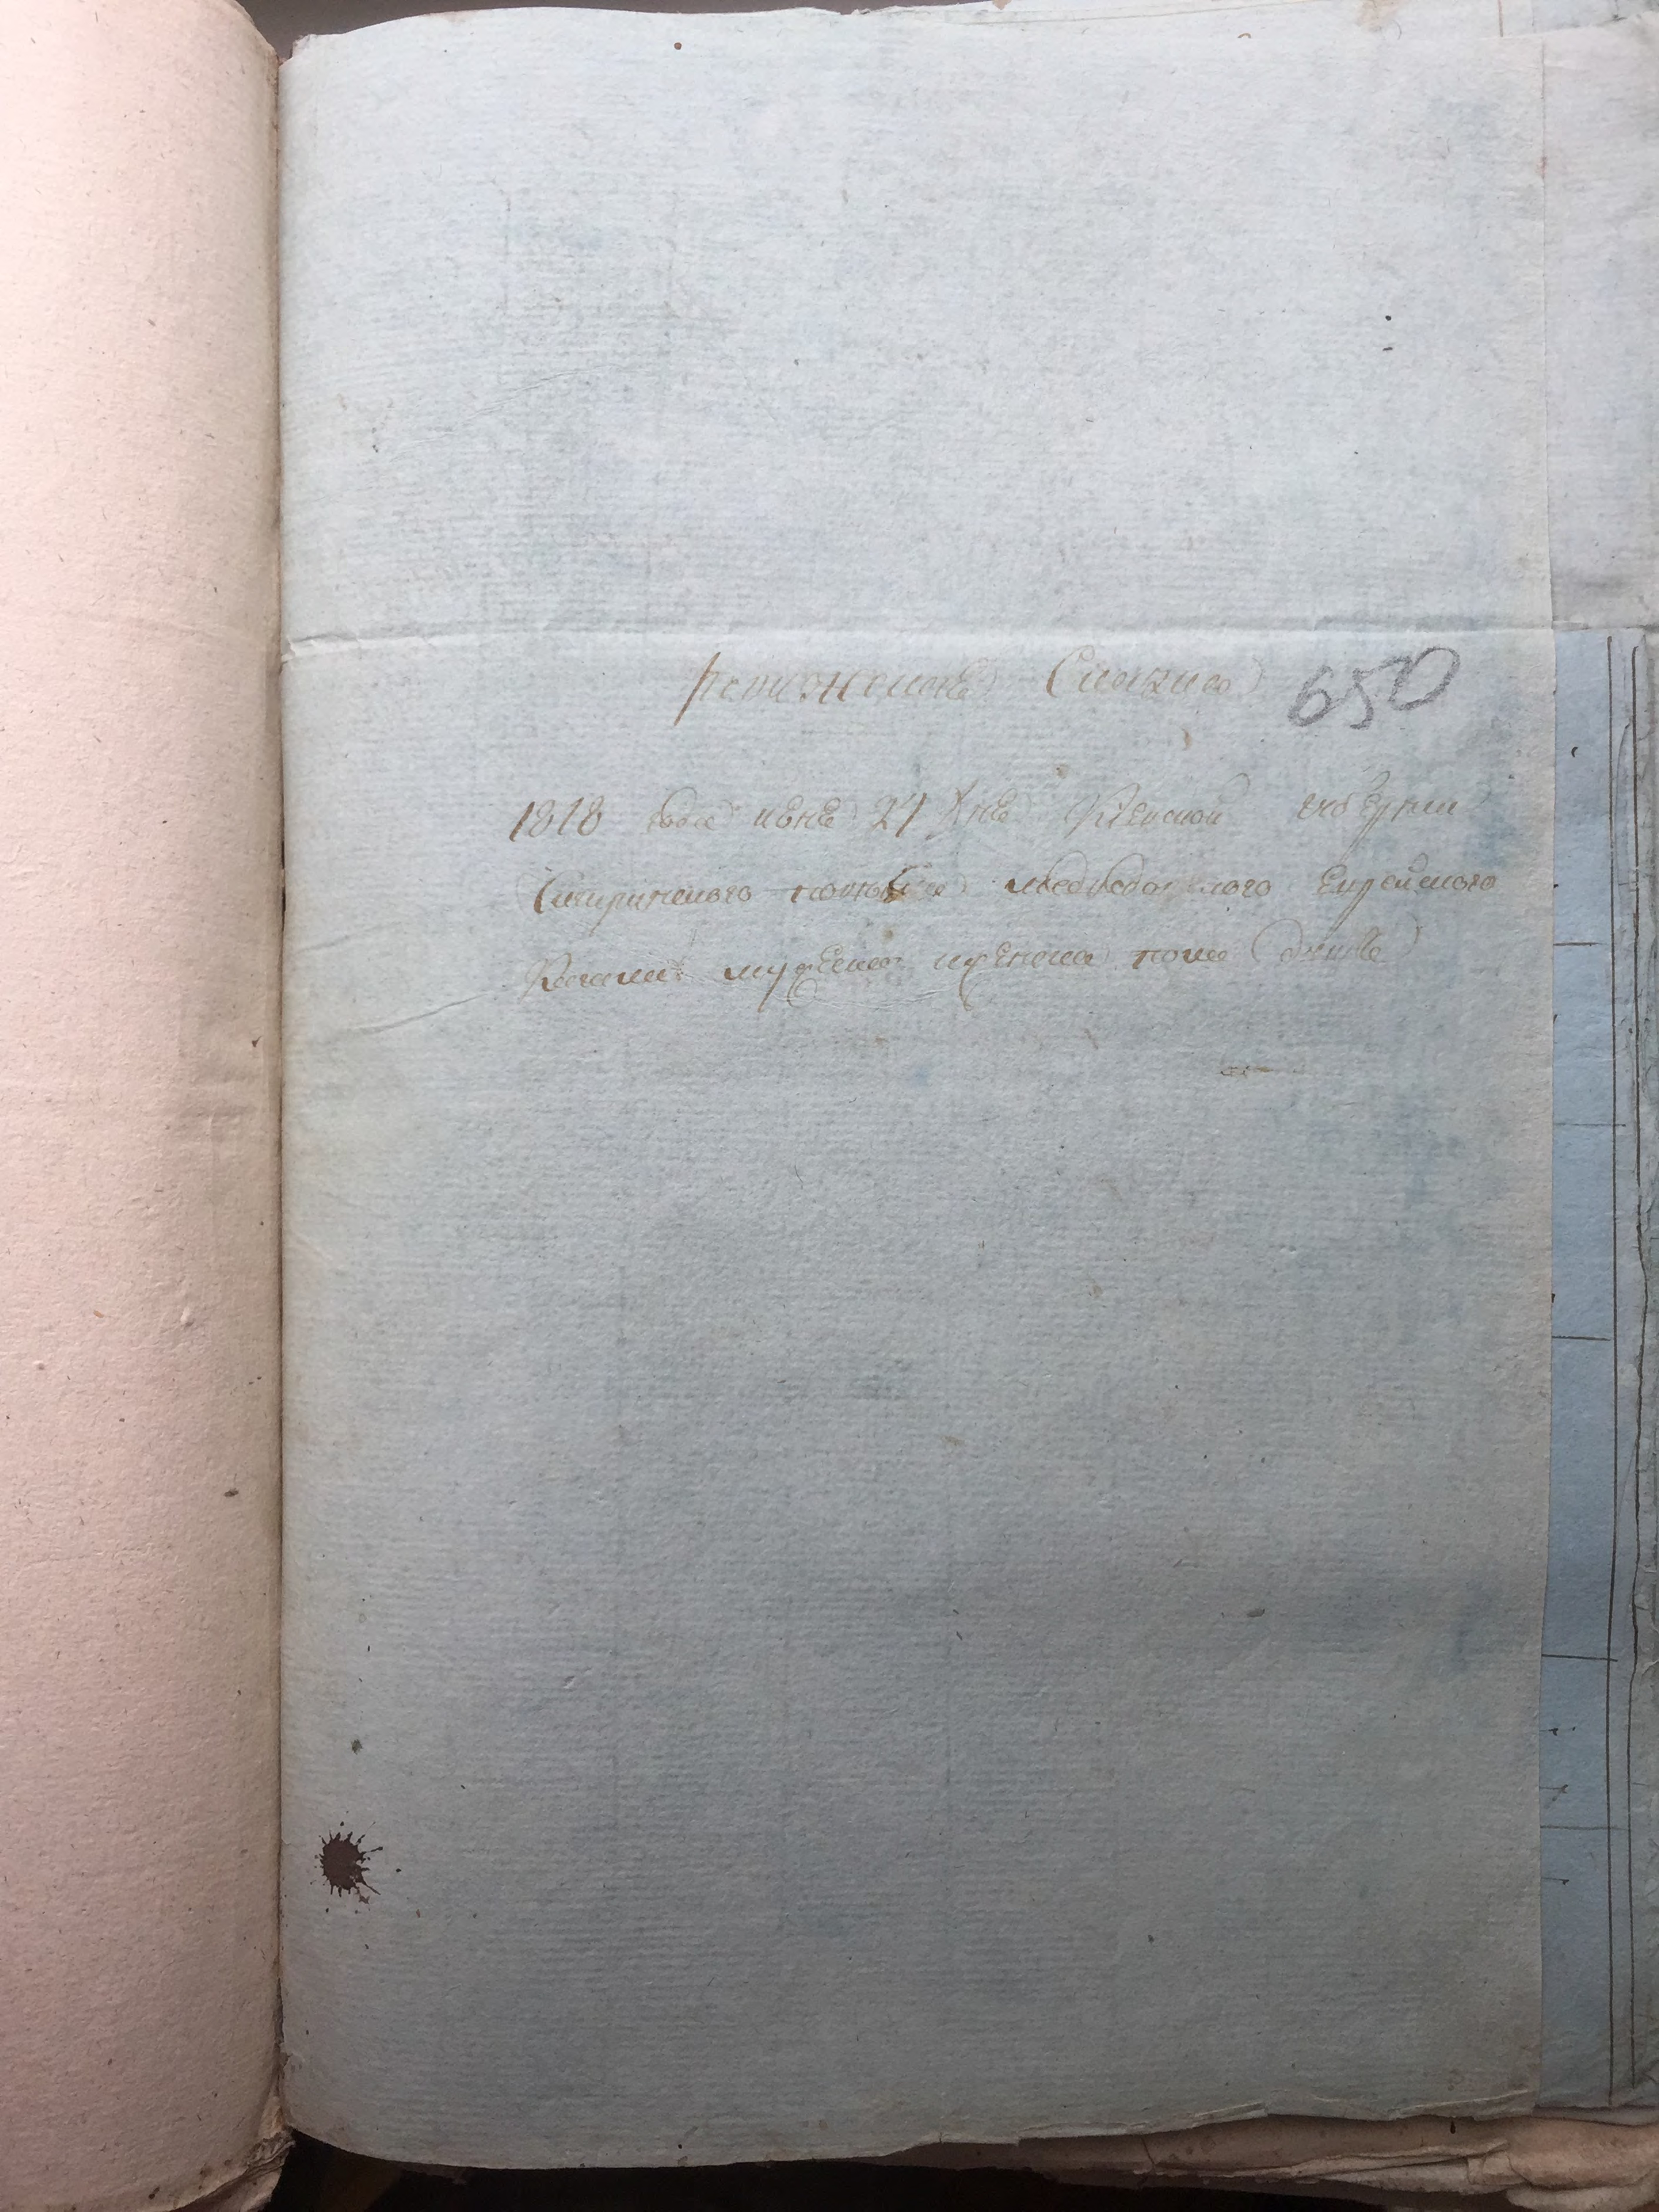 ревизская Сказка 650
1818 года июня 24 дня Киевской губернии
Сквирского повета Еврейского
Кагала мужеска и женска пола